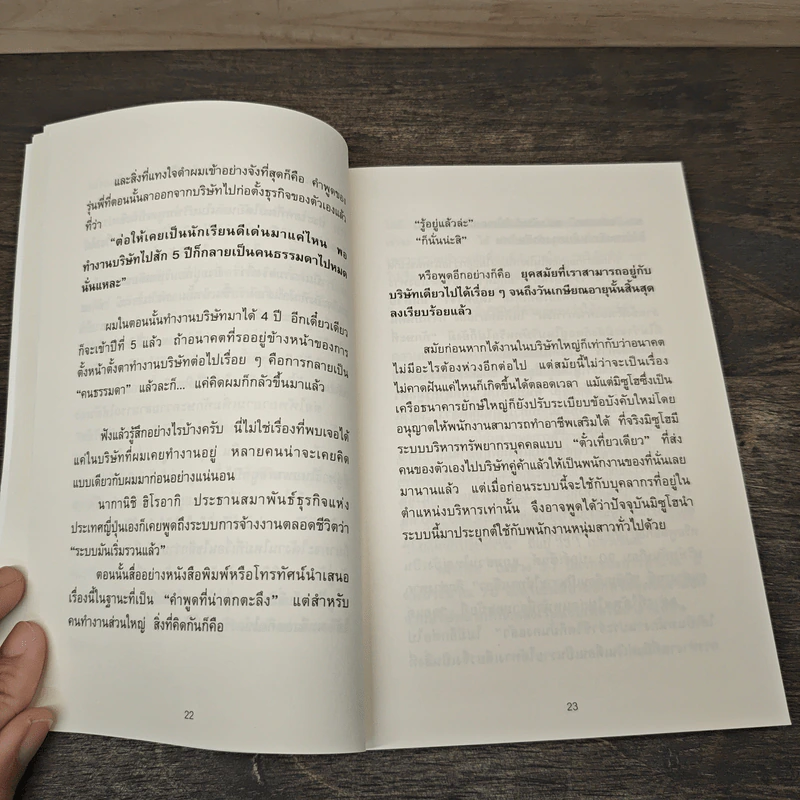 และสิ่งที่แทงใจดำผมเข้าอย่างจังที่สุดก็คือ คำพูดของ
รุ่นพี่ที่ตอนนั้นลาออกจากบริษัทไปก่อตั้งธุรกิจของตัวเองแล้ว
ที่ว่า
“ต่อให้เคยเป็นนักเรียนดีเด่นมาแค่ไหน พอ
ทำงานบริษัทไปสัก 5 ปีก็กลายเป็นคนธรรมดาไปหมด
นั่นแหละ”
ผมในตอนนั้นทำงานบริษัทมาได้ 4 ปี อีกเดี๋ยวเดียว
ก็จะเข้าปีที่ 5 แล้ว ถ้าอนาคตที่รออยู่ข้างหน้าของการ
ตั้งหน้าตั้งตาทำงานบริษัทต่อไปเรื่อย ๆ คือการกลายเป็น
“คนธรรมดา” แล้วละก็... แค่คิดผมก็กลัวขึ้นมาแล้ว
ฟังแล้วรู้สึกอย่างไรบ้างครับ นี่ไม่ใช่เรื่องที่พบเจอได้
แค่ในบริษัทที่ผมเคยทำงานอยู่ หลายคนน่าจะเคยคิด
แบบเดียวกับผมมาก่อนอย่างแน่นอน
นากานิชิ ฮิโรอากิ ประธานสมาพันธ์ธุรกิจแห่ง
ประเทศญี่ปุ่นเองก็เคยพูดถึงระบบการจ้างงานตลอดชีวิตว่า
“ระบบมันเริ่มรวนแล้ว”
ตอนนั้นสื่ออย่างหนังสือพิมพ์หรือโทรทัศน์นำเสนอ
เรื่องนี้ในฐานะที่เป็น “คำพูดที่น่าตกตะลึง” แต่สำหรับ
คนทำงานส่วนใหญ่ สิ่งที่คิดกันก็คือ
22
“รู้อยู่แล้วล่ะ”
“ก็นั่นน่ะสิ”
หรือพูดอีกอย่างก็คือ ยุคสมัยที่เราสามารถอยู่กับ
บริษัทเดียวไปได้เรื่อย ๆ จนถึงวันเกษียณอายุนั้นสิ้นสุด
ลงเรียบร้อยแล้ว
สมัยก่อนหากได้งานในบริษัทใหญ่ก็เท่ากับว่าอนาคต
ไม่มีอะไรต้องห่วงอีกต่อไป แต่สมัยนี้ไม่ว่าจะเป็นเรื่อง
ไม่คาดฝันแค่ไหนก็เกิดขึ้นได้ตลอดเวลา แม้แต่มิซูโฮซึ่งเป็น
เครือธนาคารยักษ์ใหญ่ก็ยังปรับระเบียบข้อบังคับใหม่โดย
อนุญาตให้พนักงานสามารถทำอาชีพเสริมได้ ที่จริงมิซูโฮมี
ระบบบริหารทรัพยากรบุคคลแบบ “ตั๋วเที่ยวเดียว” ที่ส่ง
คนของตัวเองไปบริษัทคู่ค้าแล้วให้เป็นพนักงานของที่นั่นเลย
มานานแล้ว แต่เมื่อก่อนระบบนี้จะใช้กับบุคลากรที่อยู่ใน
ตำแหน่งบริหารเท่านั้น จึงอาจพูดได้ว่าปัจจุบันมิซูโฮนำ
ระบบนี้มาประยุกต์ใช้กับพนักงานหนุ่มสาวทั่วไปด้วย
23